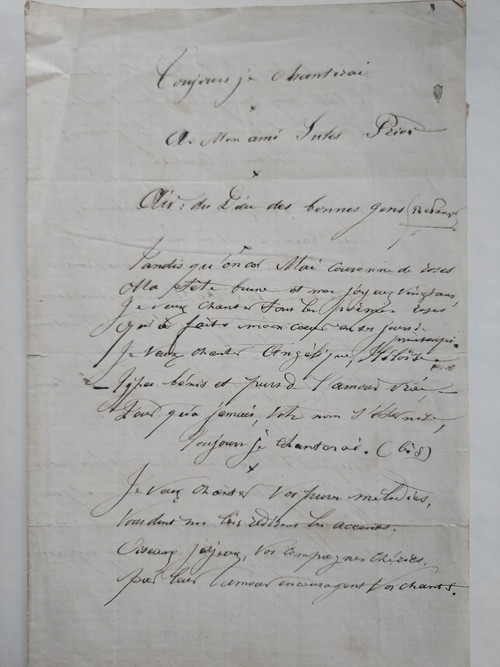 Toujours je chanterai
x
A Mon ami Jules Prior
x
Air: du Dieu des bonnes gens (Béranger)
Tandis qu'encor Mai couronne de roses
Ma tête brune et mes joyeux vingt ans,
Je veux chanter tous les poèmes
Qu'a faits mon cœur en ses jours de
printemps.
Je veux chanter Angélique, Héloïse
Types bénis et purs de l'amour vrai,
Pour qu'à jamais, votre nom s'éternise,
Toujours je chanterai. (bis)
x
Je veux chanter vos pures mélodies,
Vous dont nos bois redisent les accents,
Oiseaux joyeux, vos compagnes chéries,
Par leur amour encouragent vos chants.